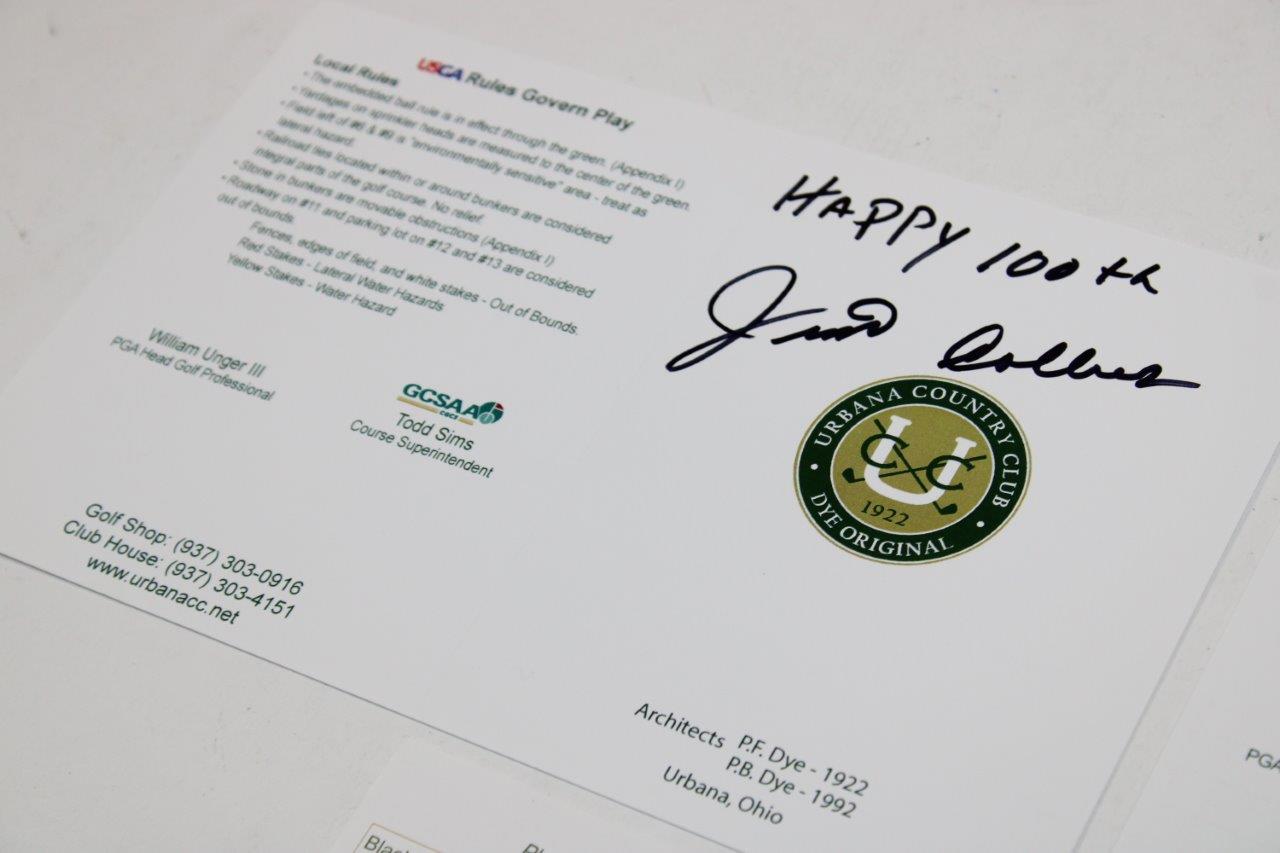 USGA Rules Govern Play
Local Rules
• The embedded ball rule is in effect through the green. (Appendix I)
• Yardages on sprinkler heads are measured to the center of the green.
• Field left of #6 & #9 is "environmentally sensitive" area - treat as
lateral hazard.
• Railroad ties located within or around bunkers are considered
integral parts of the golf course. No relief.
• Stone in bunkers are movable obstructions (Appendix I)
• Roadway on #11 and parking lot on #12 and #13 are considered
out of bounds.
Fences, edges of field, and white stakes - Out of Bounds.
Red Stakes - Lateral Water Hazards
Yellow Stakes - Water Hazard
William Unger III
PGA Head Golf Professional
GCSAA
Todd Sims
Course Superintendent
Golf Shop: (937) 303-0916
Club House: (937) 303-4151
www.urbanacc.net
HAPPY 100th
URBANA COUNTRY CLUB
UCC
1922
DYE ORIGINAL
Architects P.F. Dye - 1922
P.B. Dye - 1992
Urbana, Ohio
PGA